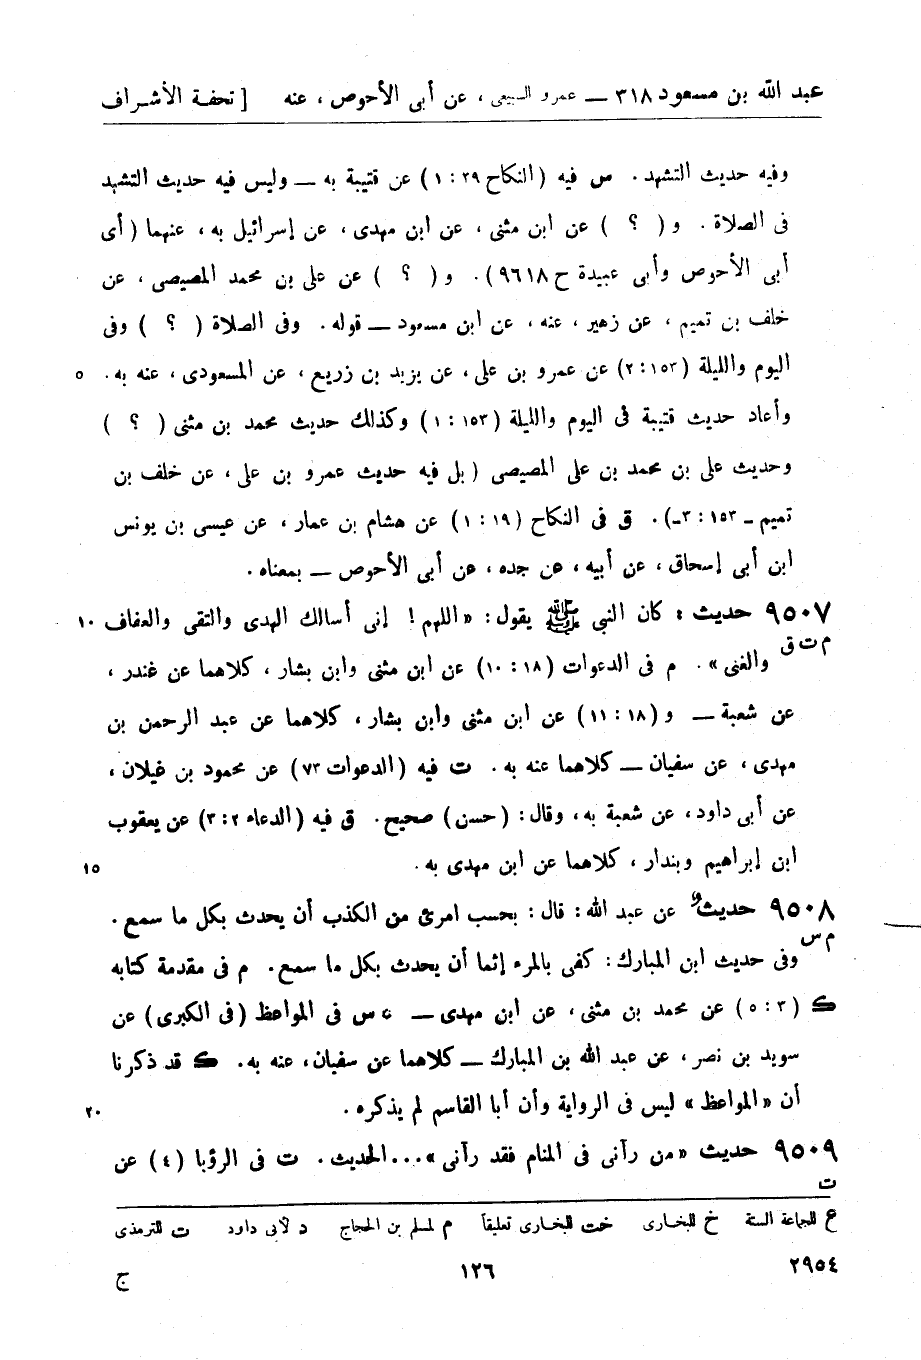 عبد الله بن مسعود ٣١٨ — عمرو السبيعى، عن أبى الأحوص، عنه [ تحفة الأشراف
وفيه حديث التشهد. س فيه (النكاح ٣٩ : ١) عن قتيبة به — وليس فيه حديث التشهد
فى الصلاة. و( ؟ ) عن ابن مثنى، عن ابن مهدى، عن إسرائيل به، عنهما (أى
أبى الأحوص وأبى عبيدة ح ٩٦١٨). و( ؟ ) عن على بن محمد المصيصى، عن
خلف بن تميم، عن زهير، عنه، عن ابن مسعود — قوله. وفى الصلاة ( ؟ ) وفى
اليوم والليلة (١٥٣ : ٢) عن عمرو بن على، عن يزيد بن زريع، عن المسعودى، عنه به. ٥
وأعاد حديث قتيبة فى اليوم والليلة (١٥٣ : ١) وكذلك حديث محمد بن مثنى ( ؟ )
وحديث على بن محمد بن على المصيصى (بل فيه حديث عمرو بن على، عن خلف بن
تميم ـ ١٥٣ : ٣ـ). ق فى النكاح (١٩ : ١) عن هشام بن عمار، عن عيسى بن يونس
ابن أبى إسحاق، عن أبيه، عن جده، عن أبى الأحوص — بمعناه.
٩٥٠٧ حديث : كان النبى ﷺ يقول: «اللهم! إنى أسالك الهدى والتقى والعفاف ١٠
م ت ق والغنى». م فى الدعوات (١٨ : ١٠) عن ابن مثنى وابن بشار، كلاهما عن غندر،
عن شعبة — و (١٨ : ١١) عن ابن مثنى وابن بشار، كلاهما عن عبد الرحمن بن
مهدى، عن سفيان — كلاهما عنه به. ت فيه (الدعوات ٧٣) عن محمود بن غيلان،
عن أبى داود، عن شعبة به، وقال: (حسن) صحيح. ق فيه (الدعاء ٢ : ٣) عن يعقوب
ابن إبراهيم وبندار، كلاهما عن ابن مهدى به. ١٥
٩٥٠٨ حديث عن عبد الله: قال: بحسب امرئ من الكذب أن يحدث بكل ما سمع.
م س وفى حديث ابن المبارك: كفى بالمرء إثما أن يحدث بكل ما سمع. م فى مقدمة كتابه
ك (٣ : ٥) عن محمد بن مثنى، عن ابن مهدى — س فى المواعظ (فى الكبرى) عن
سويد بن نصر، عن عبد الله بن المبارك — كلاهما عن سفيان، عنه به. ك قد ذكرنا
أن «المواعظ» ليس فى الرواية وأن أبا القاسم لم يذكره. ٢٠
٩٥٠٩ حديث «من رآنى فى المنام فقد رآنى»...الحديث. ت فى الرؤيا (٤) عن
ت
ع للجماعة الستة خ للبخارى خت للبخارى تعليقاً م لمسلم بن الحجاج د لأبى داود ت للترمذى
٢٩٥٤ ١٢٦ ج